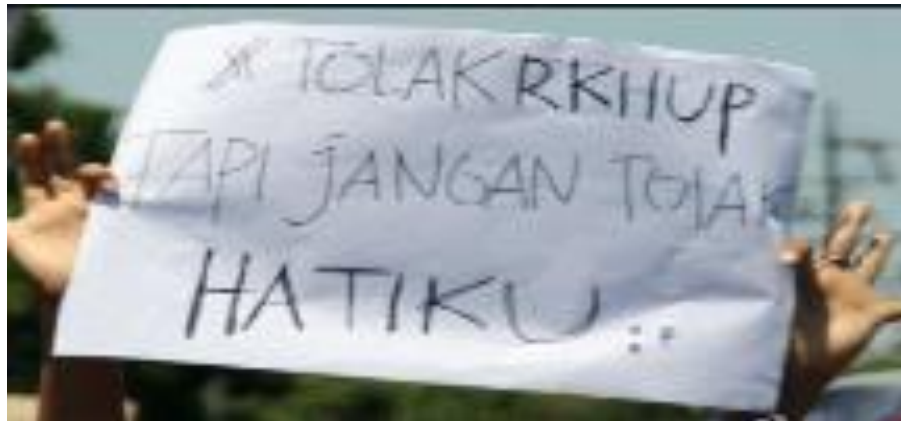 * TOLAK RKHUP
TAPI JANGAN TOLAK
HATIKU ::